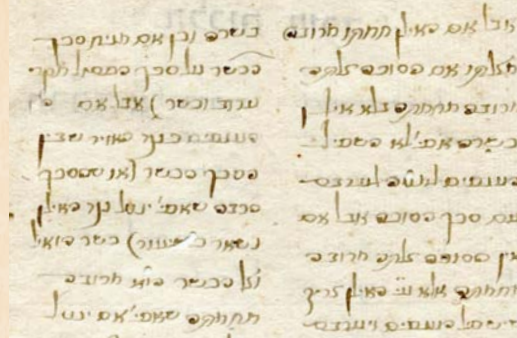 אבל אם האילן חמתו מרובה
מצלתו אם הסוכה צלתה
מרובה מחמתה בלא אילן
כשרה אפי' לא השפיל
הענפים למטה לערבם
עם סכך הסוכה אבל אם
אין הסוכה צלתה מרובה
מחמתה אלא ע"י האילן צריך
שישפיל הענפים ויערבם
כשרה וכן אם הניח סכך
הכשר על סכך הפסול מקרי
ערוב וכשר) אבל אם
הענפים כנגד האויר שבין
הסכך הכשר (או שהסכך
מרובה שאפי' ינטל נגד האילן
נשאר כשיעור) כשר הואיל
וצל הכשר הוא מרובה
מחמתה שאפי' אם ינטל